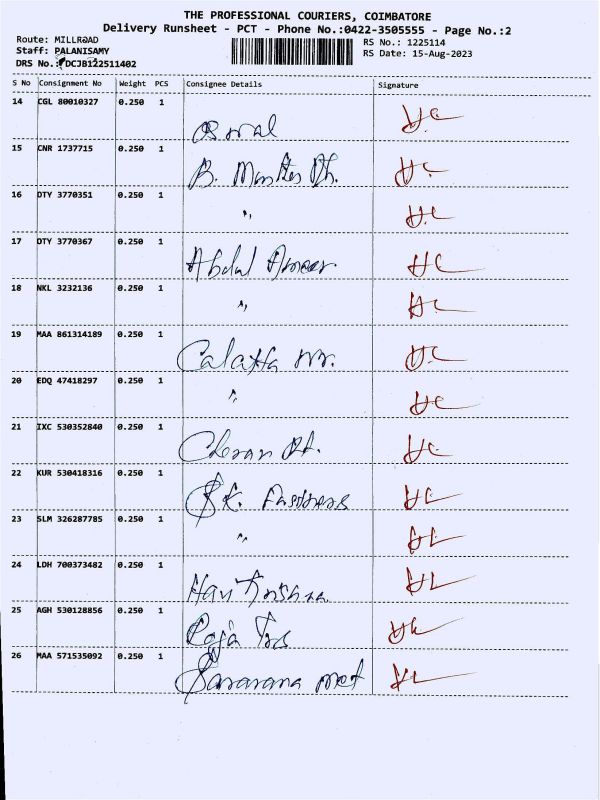 THE PROFESSIONAL COURIERS, COIMBATORE
Delivery Runsheet - PCT - Phone No.:0422-3505555 - Page No.:2
Route: MILLROAD
Staff: PALANISAMY
DRS No.: DCJB122511402
RS No.: 1225114
RS Date: 15-Aug-2023
S No Consignment No Weight PCS Consignee Details Signature
14 CGL 80010327 0.250 1
15 CNR 1737715 0.250 1 B.
16 DTY 3770351 0.250 1 "
17 DTY 3770367 0.250 1 Abdul Ameer
18 NKL 3232136 0.250 1 "
19 MAA 861314189 0.250 1
20 EDQ 47418297 0.250 1 "
21 IXC 530352840 0.250 1
22 KUR 530418316 0.250 1 S.K. Fastners
23 SLM 326287785 0.250 1 "
24 LDH 700373482 0.250 1 Hari Krishna
25 AGH 530128856 0.250 1 Raja Trs
26 MAA 571535092 0.250 1 Saravana met